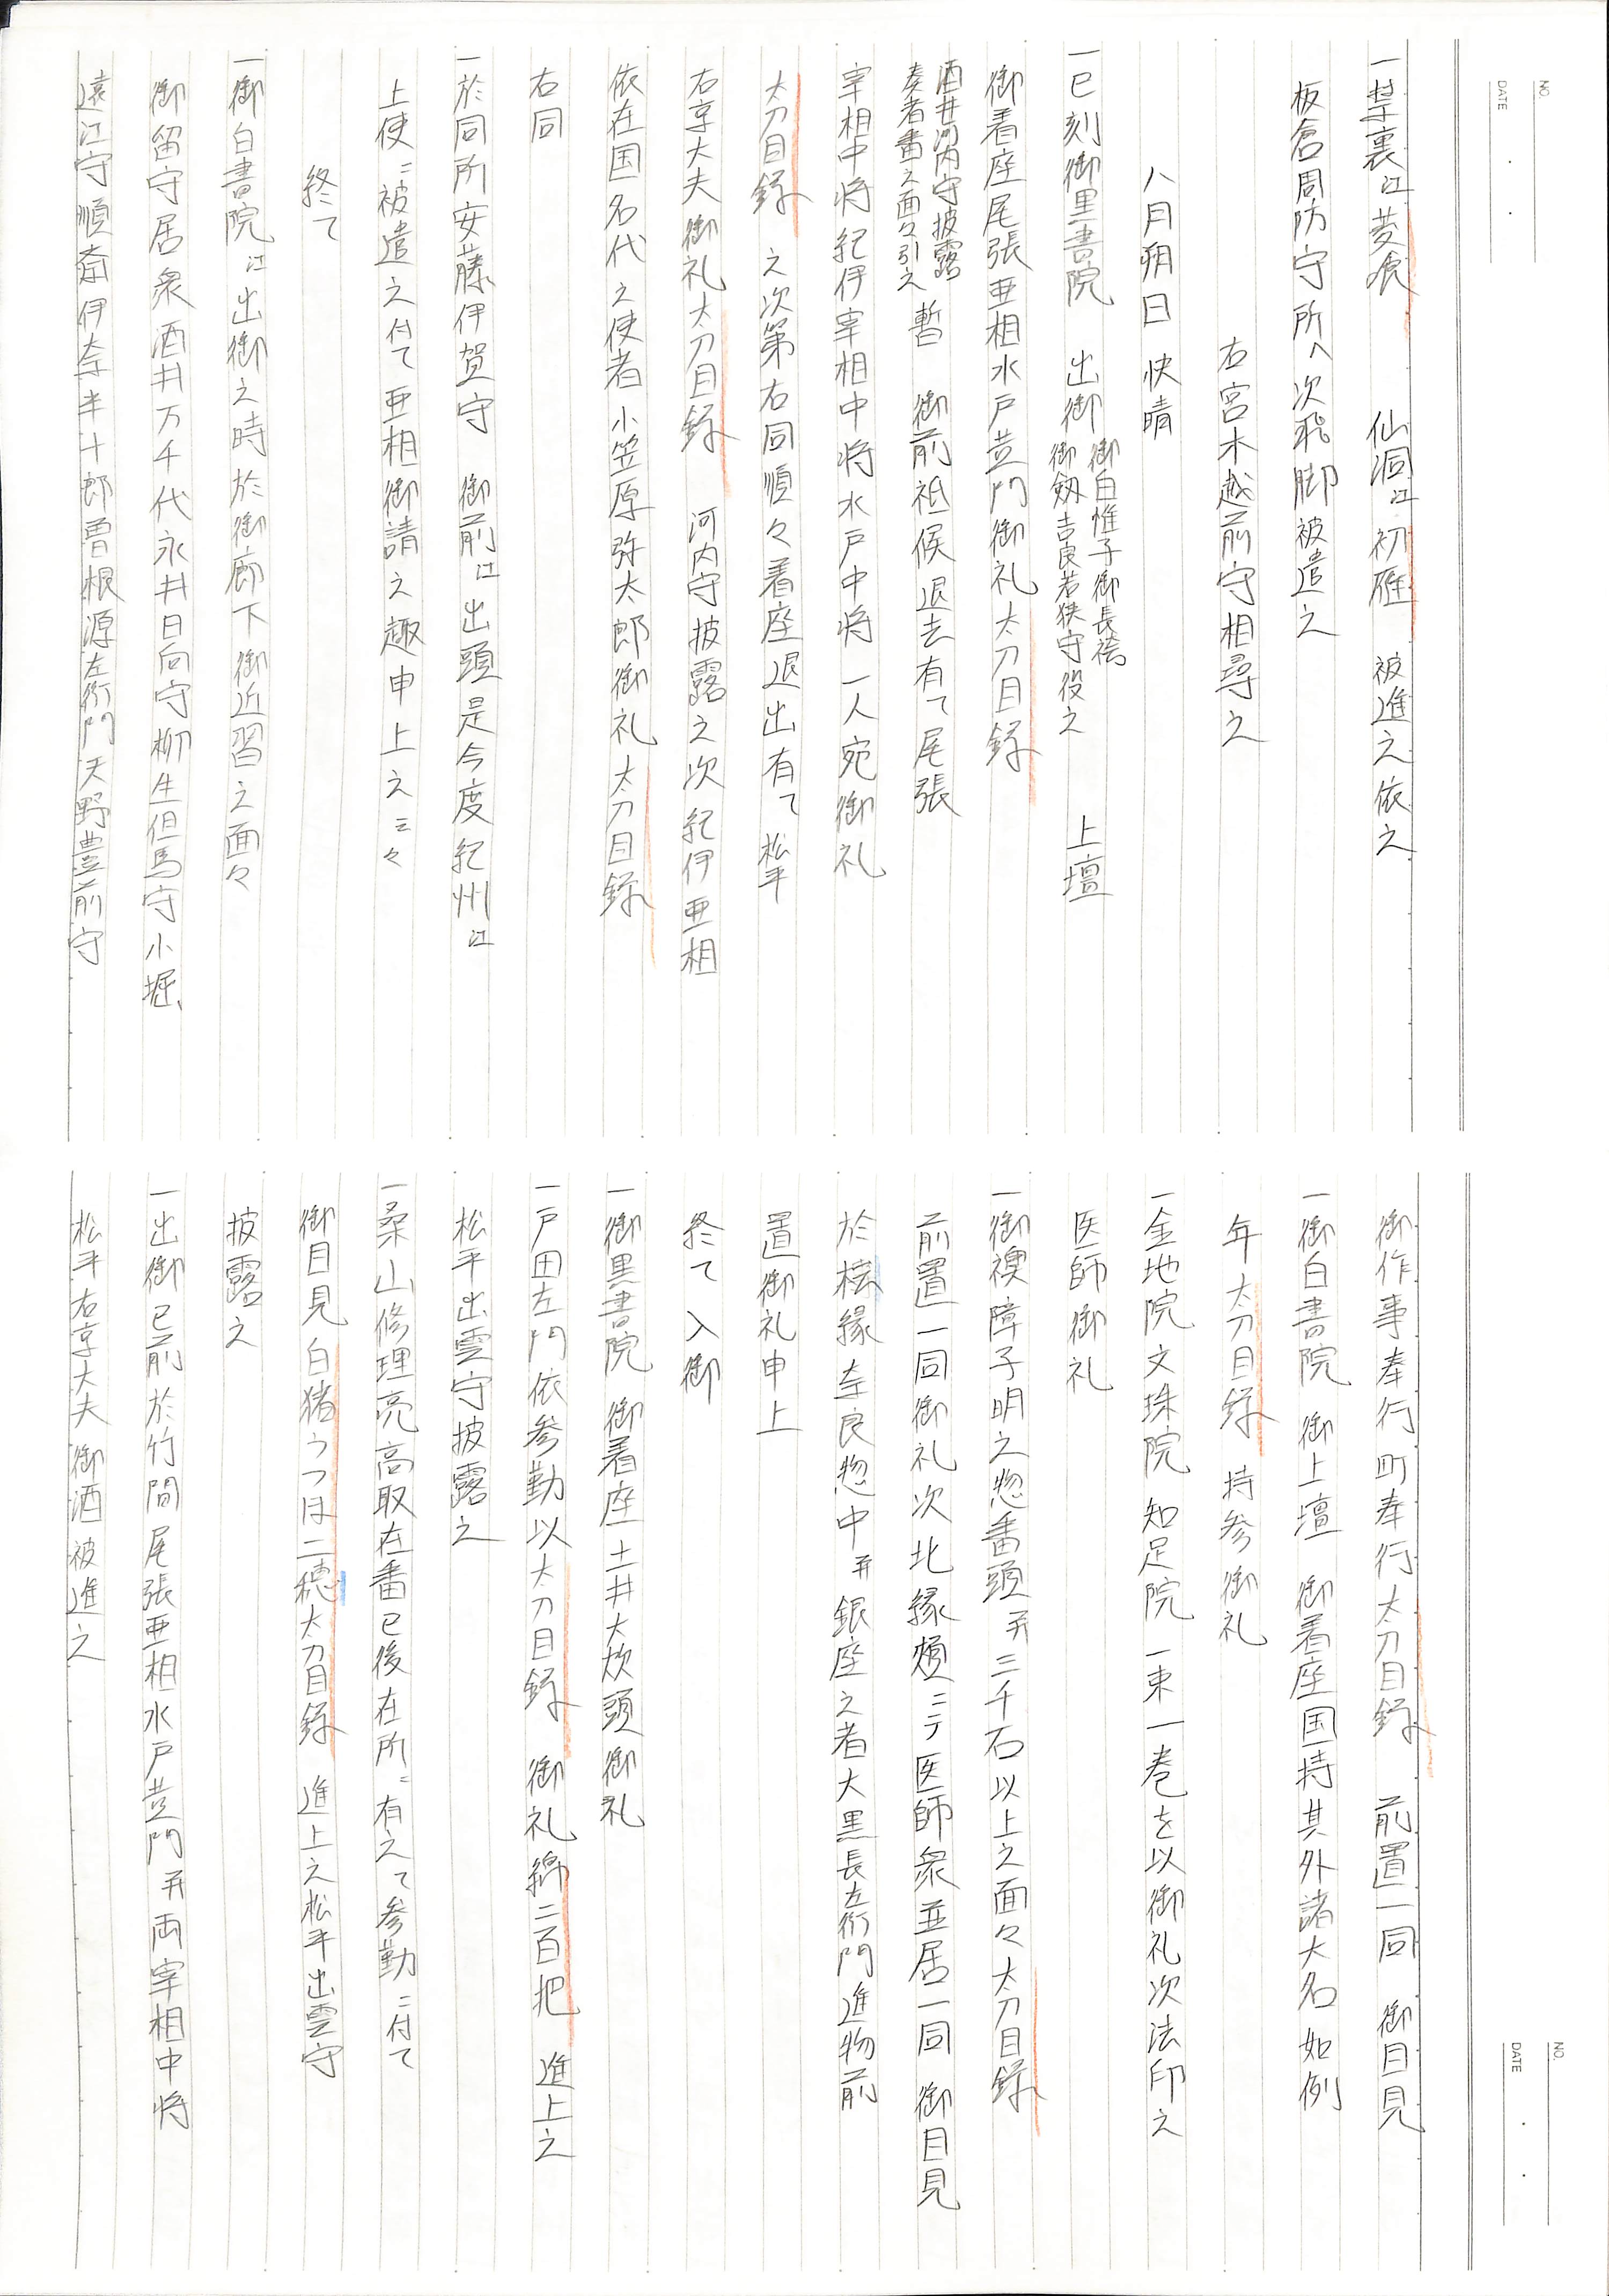 NO.
DATE
一禁裏江菱喰　仙洞江初雁　被進之依之
板倉周防守所へ次飛脚被遣之
右宮木越前守相尋之
八月朔日　快晴
一巳刻御黒書院　出御 御白惟子御長袴 御劔吉良若狭守役之　上壇
御着座尾張亜相水戸黄門御礼太刀目録
酒井河内守披露 奏者番之面々引之　暫　御前祗候退去有て尾張
宰相中将紀伊宰相中将水戸中将一人宛御礼
太刀目録　之次第右同順々着座退出有て松平
右京大夫御礼太刀目録　河内守披露之次紀伊亜相
依在国名代之使者小笠原弥太郎御礼太刀目録
右同
一於同所安藤伊賀守　御前江出頭是今度紀州江
上使ニ被遣之付て亜相御請之趣申上之云々
終て
一御白書院江出御之時於御廊下御近習之面々
御留守居衆酒井万千代永井日向守柳生但馬守小堀
遠江守順斎伊奈半十郎曽根源左衛門天野豊前守
NO.
DATE
御作事奉行町奉行太刀目録　前置一同　御目見
一御白書院　御上壇　御着座国持其外諸大名如例
年太刀目録　持参御礼
一金地院文珠院知足院一束一巻を以御礼次法印之
医師御礼
一御襖障子明之惣番頭并三千石以上之面々太刀目録
前置一同御礼次北縁頬ニテ医師衆並居一同　御目見
於桧縁奈良惣中并銀座之者大黒長左衛門進物前
置御礼申上
終て　入御
一御黒書院　御着座土井大炊頭御礼
一戸田左門依参勤以太刀目録　御礼綿二百把　進上之
松平出雲守披露之
一桑山修理亮高取在番已後在所ニ有之て参勤ニ付て
御目見白猪うつほ二穂太刀目録　進上之松平出雲守
披露之
一出御已前於竹間尾張亜相水戸黄門并両宰相中将
松平右京大夫御酒被進之